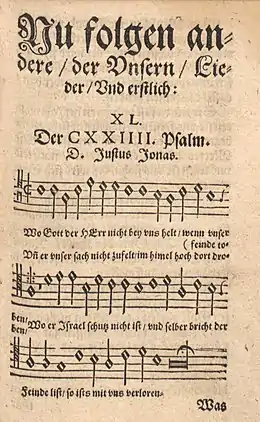 Nu folgen an=
dere / der Vnsern / Lie=
der / Vnd erstlich:
XL.
Der CXXIIII. Psalm.
D. Justus Jonas.
Wo Gott der HErr nicht bey vns helt / wenn vnser
( feinde to=
Vñ er vnser sach nicht zufelt / im himel hoch dort dro=
ben /
ben / Wo er Israel schutz nicht ist / vnd selber bricht der
Feinde list / so ists mit vns verloren.
Was